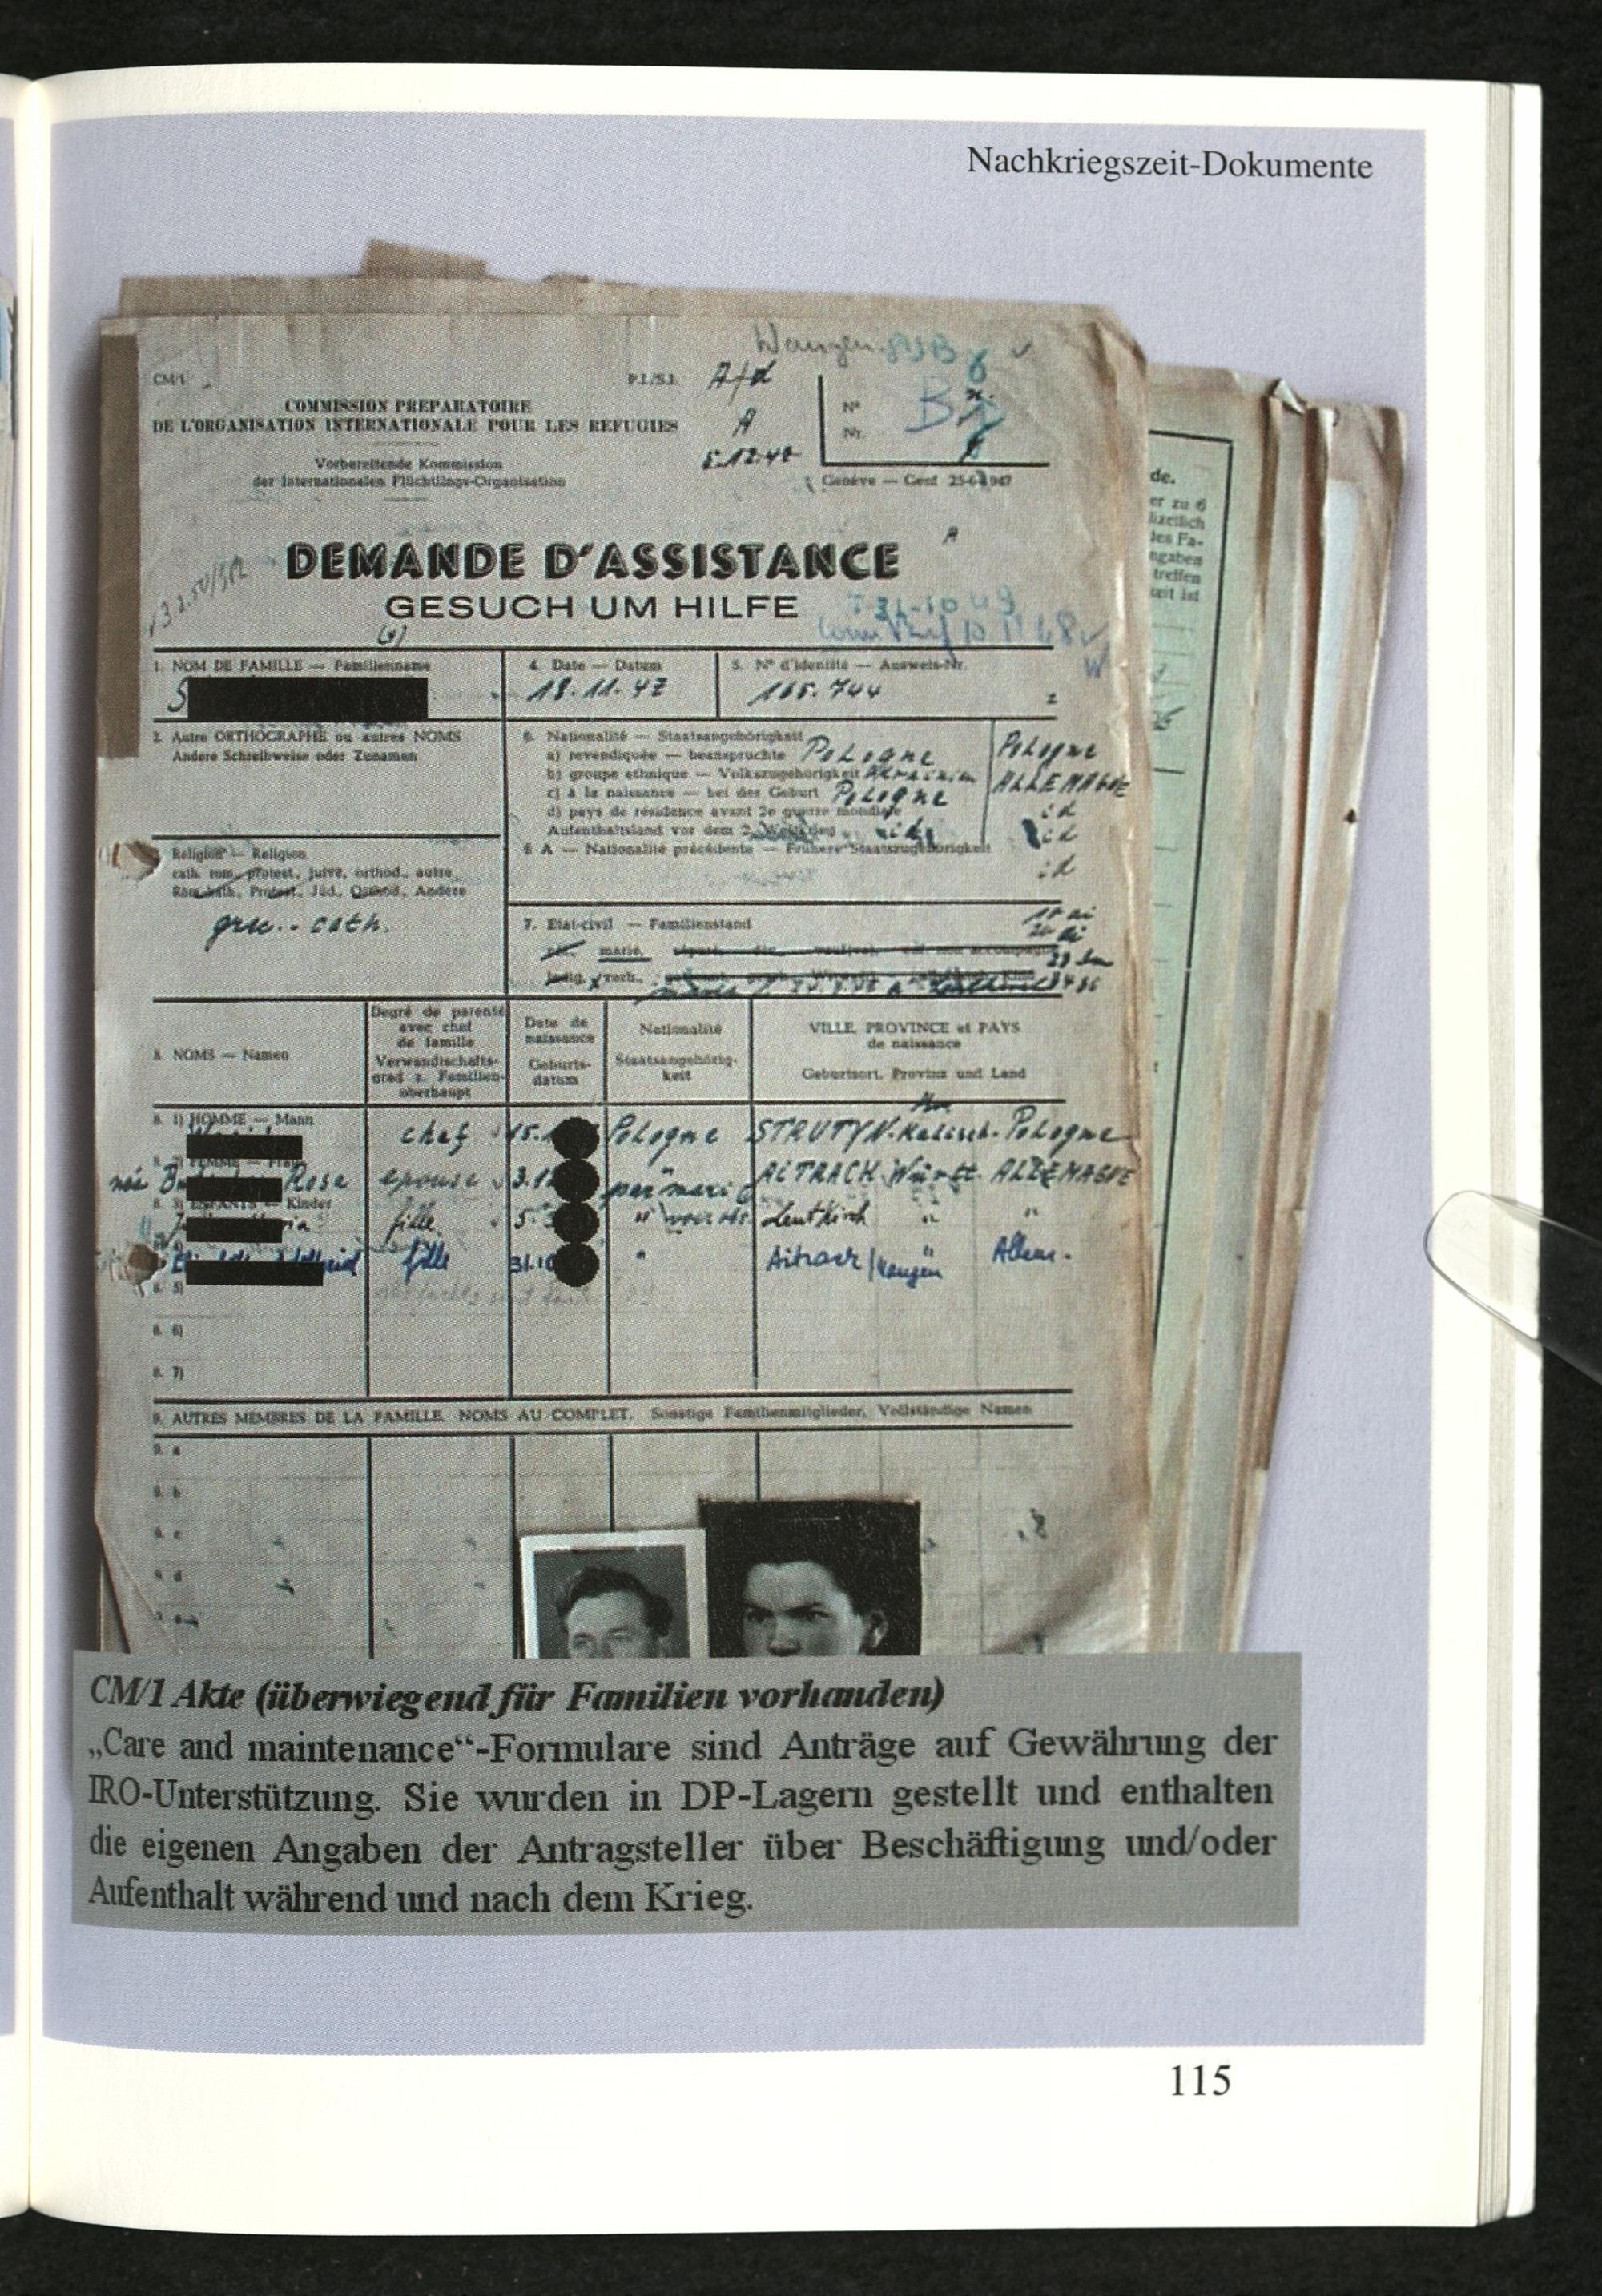 Nachkriegszeit-Dokumente
Wangen
CM/1
P.I./S.I.
A
COMMISSION PREPARATOIRE
DE L'ORGANISATION INTERNATIONALE POUR LES REFUGIES
Vorbereitende Kommission
der Internationalen Flüchtlings-Organisation
5.12.47
N°
Nr.
Genève — Genf
DEMANDE D'ASSISTANCE
GESUCH UM HILFE
1. NOM DE FAMILLE — Familienname
S
4. Date — Datum
18.11.47
5. N° d'identité — Ausweis-Nr.
165.744
2. Autre ORTHOGRAPHE ou autres NOMS
Andere Schreibweise oder Zunamen
6. Nationalité — Staatsangehörigkeit
a) revendiquée — beanspruchte Pologne Pologne
b) groupe ethnique — Volkszugehörigkeit Ukrainien ALLEMAGNE
c) à la naissance — bei der Geburt Pologne id
d) pays de résidence avant 2e guerre mondiale
Aufenthaltsland vor dem 2. Weltkrieg id id
6 A — Nationalité précédente — Frühere Staatszugehörigkeit
id
Religion — Religion
cath. rom., protest., juive, orthod., autre
Röm.kath., Protest., Jüd., Orthod., Andere
grec.-cath.
7. Etat-civil — Familienstand
marié,
ledig, verh.,
8. NOMS — Namen
Degré de parenté
avec chef
de famille
Verwandtschafts-
grad z. Familien-
oberhaupt
Date de
naissance
Geburts-
datum
Nationalité
Staatsangehörig-
keit
VILLE, PROVINCE et PAYS
de naissance
Geburtsort, Provinz und Land
8. 1) HOMME — Mann
chef 15. Pologne STRUTYN. Pologne
née Rose epouse 3. par mari AITRACH Württ. ALLEMAGNE
8. 3) ENFANTS — Kinder
fille 5. " Leutkirch " "
fille 31. " Aitrach / Wangen " Allem.
8. 5)
8. 6)
8. 7)
9. AUTRES MEMBRES DE LA FAMILLE, NOMS AU COMPLET. Sonstige Familienmitglieder, Vollständige Namen
9. a
9. b
9. c
9. d
de.
er zu 6
lizeilich
des Fa-
ngaben
treffen
keit ist
CM/1 Akte (überwiegend für Familien vorhanden)
„Care and maintenance“-Formulare sind Anträge auf Gewährung der
IRO-Unterstützung. Sie wurden in DP-Lagern gestellt und enthalten
die eigenen Angaben der Antragsteller über Beschäftigung und/oder
Aufenthalt während und nach dem Krieg.
115